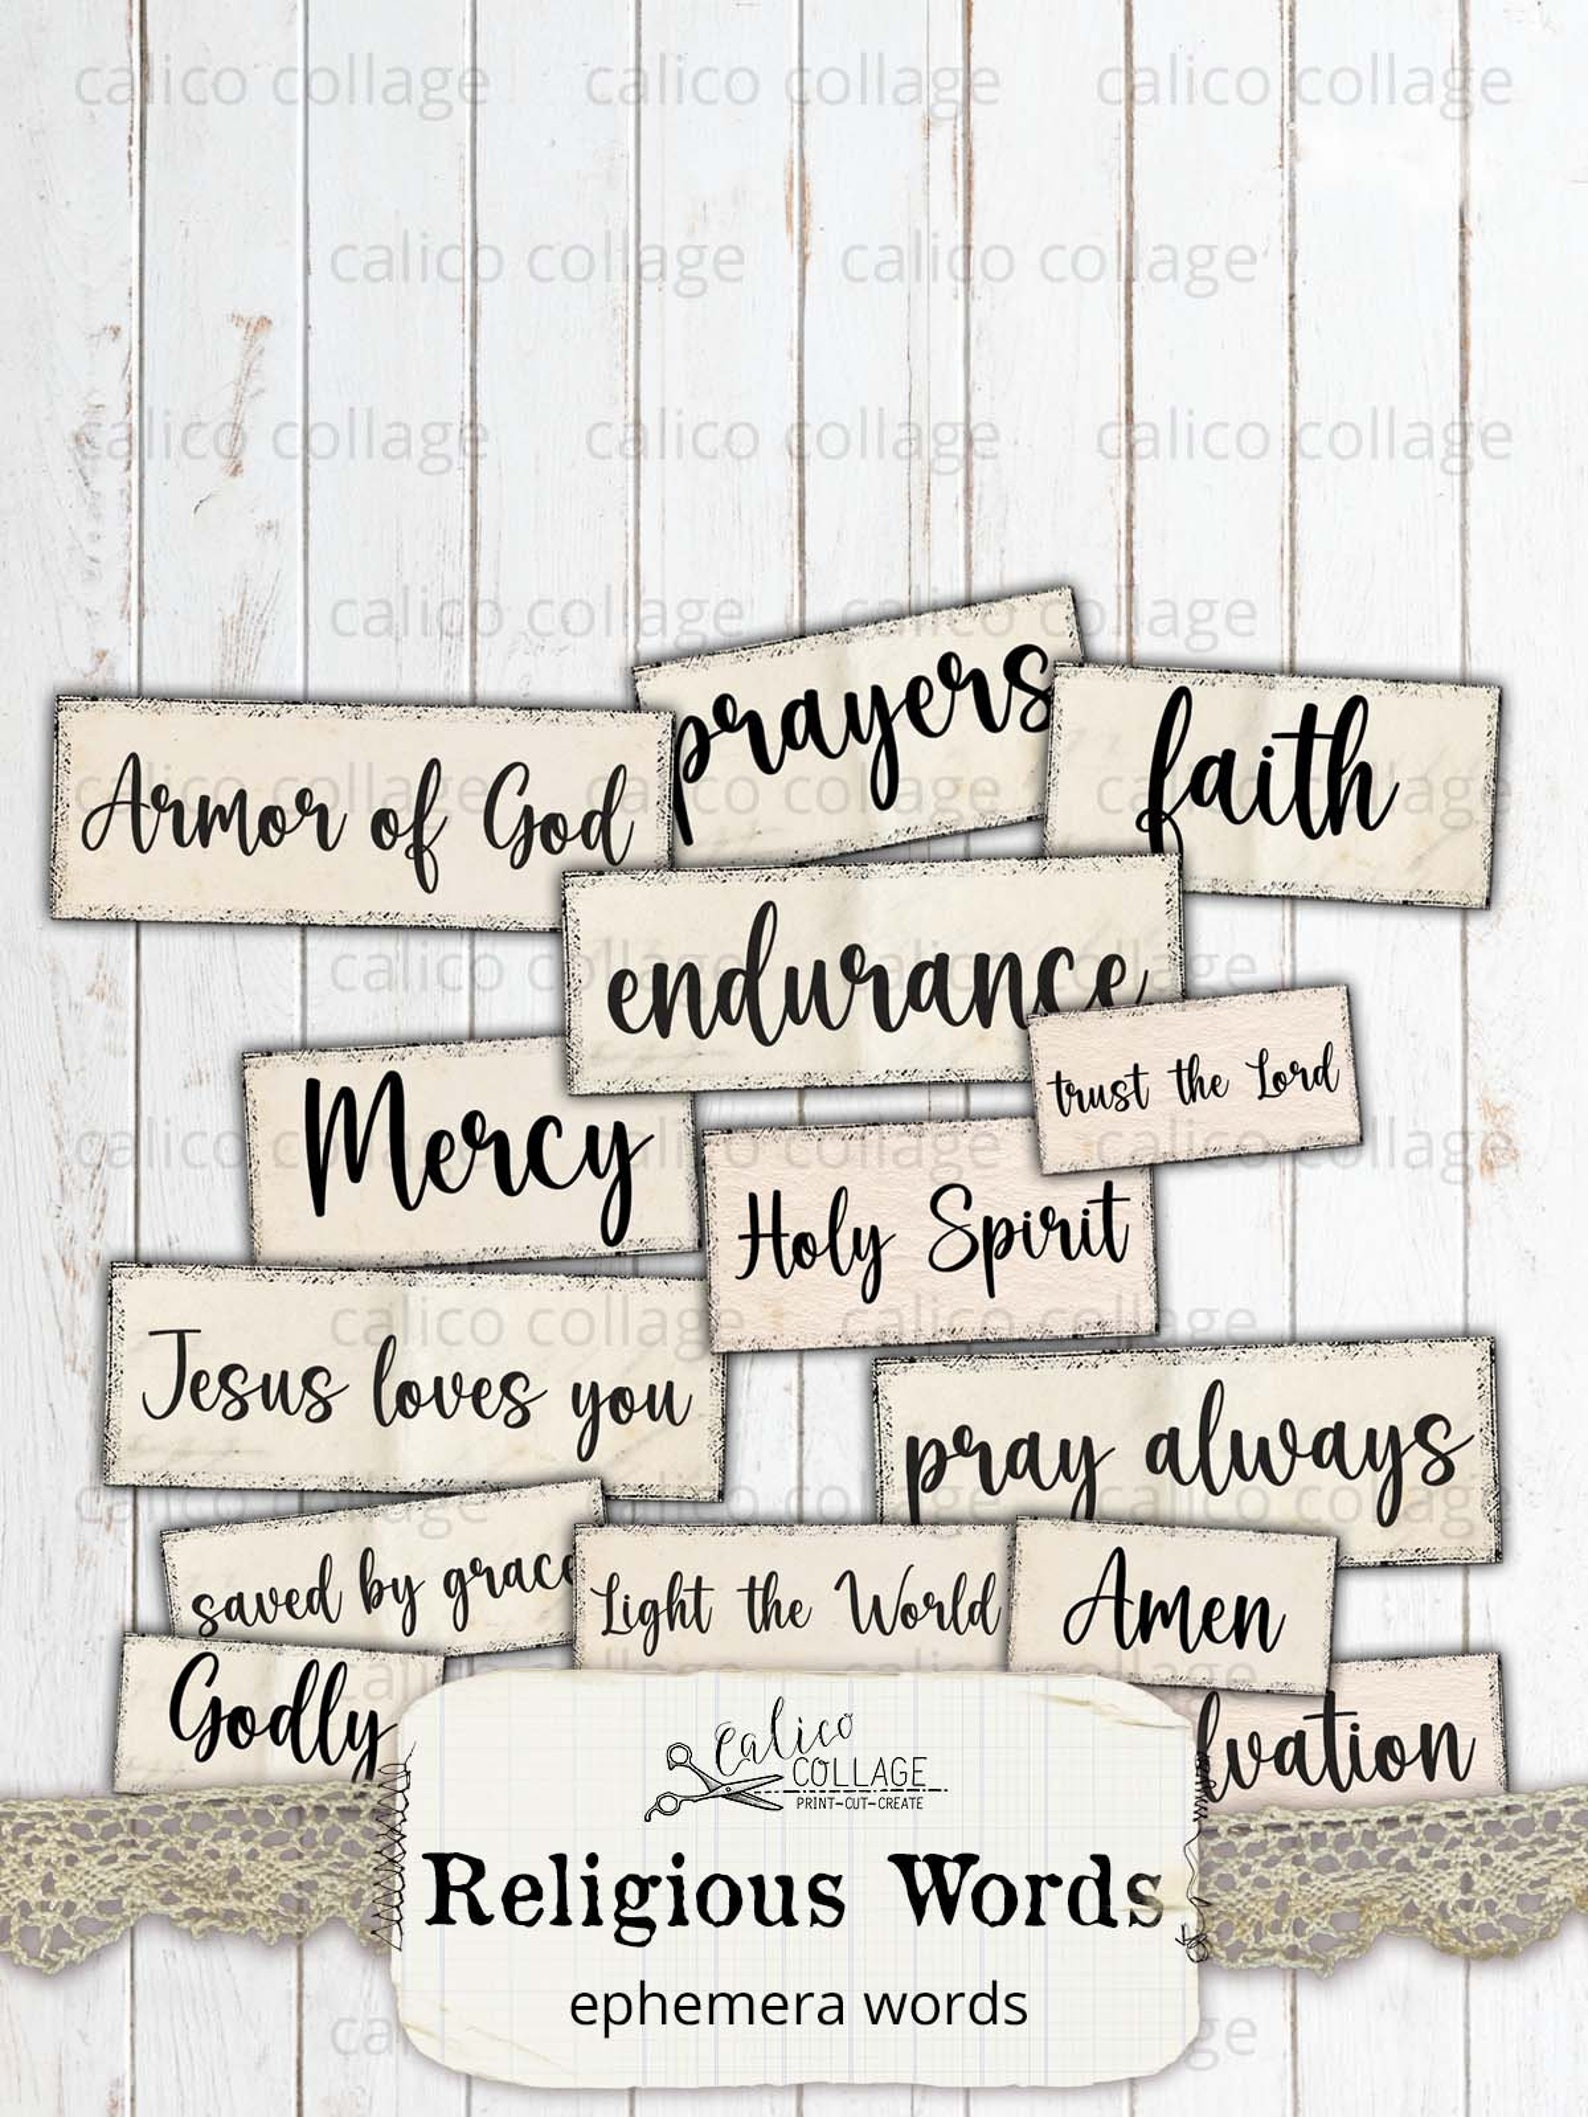 calico collage calico collage calico collage
calico collage calico collage
calico collage calico collage calico collage
calico collage calico collage
prayers
faith
Armor of God
endurance
trust the Lord
Mercy
Holy Spirit
Jesus loves you
pray always
saved by grace
Light the World
Amen
Godly
lvation
Calico
COLLAGE
PRINT-CUT-CREATE
Religious Words
ephemera words